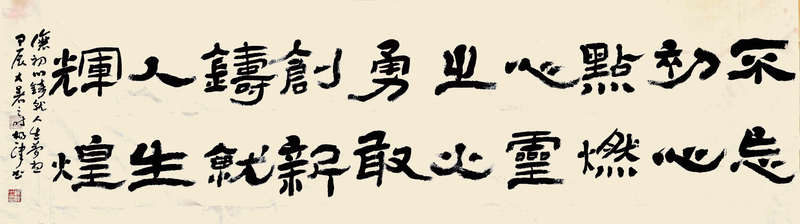 不忘
初心
點燃
心靈
之火
勇敢
創新
鑄就
人生
輝煌
初心鑄就人生夢想
甲辰大暑